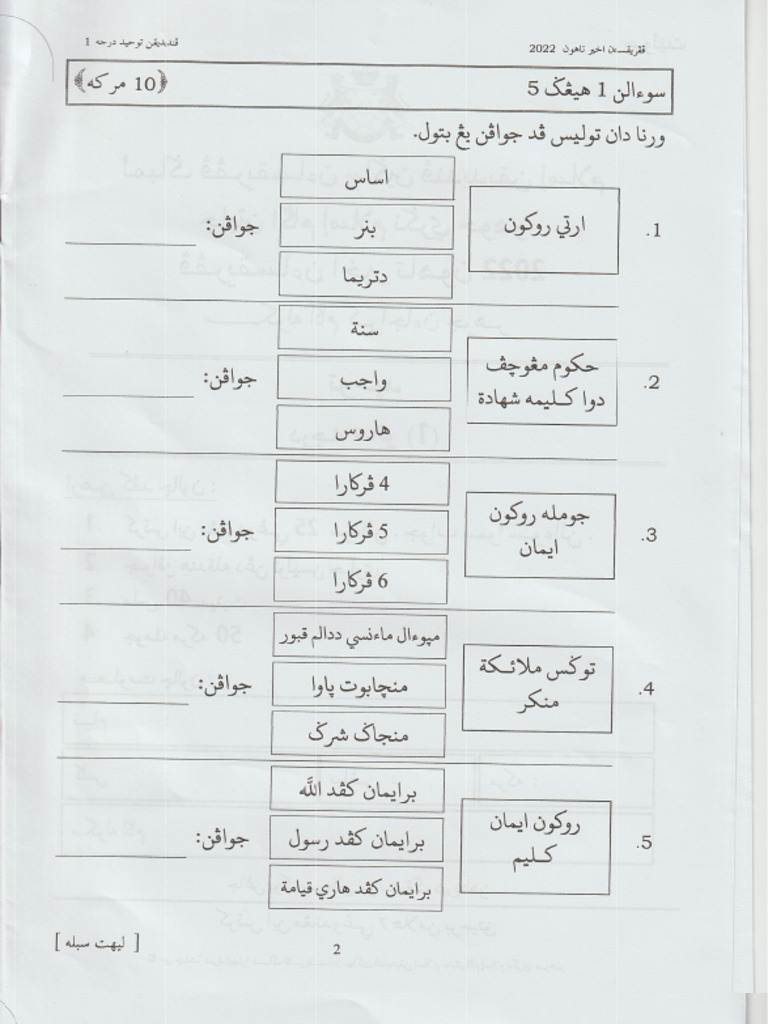 ڤڤريقساٴن اخير تاهون 2022
ڤنديديقن توحيد درجه 1
سوءالن 1 هيڠݢ 5
﴿10 مركه﴾
ورنا دان توليس ڤد جواڤن يڠ بتول.
1.
ارتي روكون
اساس
بنر
دتريما
جواڤن: ____________
2.
حكوم مڠوچڤ
دوا كليمه شهادة
سنة
واجب
هاروس
جواڤن: ____________
3.
جومله روكون
ايمان
4 ڤركارا
5 ڤركارا
6 ڤركارا
جواڤن: ____________
4.
توݢس ملائكة
منكر
مڽوءال ماءنسي ددالم قبور
منچابوت ڽاوا
منجاݢ شرݢ
جواڤن: ____________
5.
روكون ايمان
كليم
برايمان كڤد الله
برايمان كڤد رسول
برايمان كڤد هاري قيامة
جواڤن: ____________
2
[ ليهت سبله ]